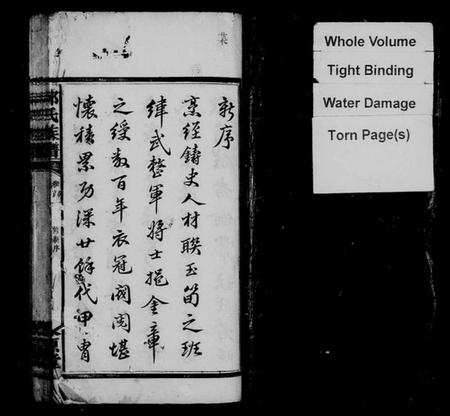 新序
烹經鑄史人材聯玉筍之班
緯武整軍將士挹金章
之綬數百年衣冠閥閱堪
懷積累功深廿餘代甲胄
氏族譜
Whole Volume
Tight Binding
Water Damage
Torn Page(s)